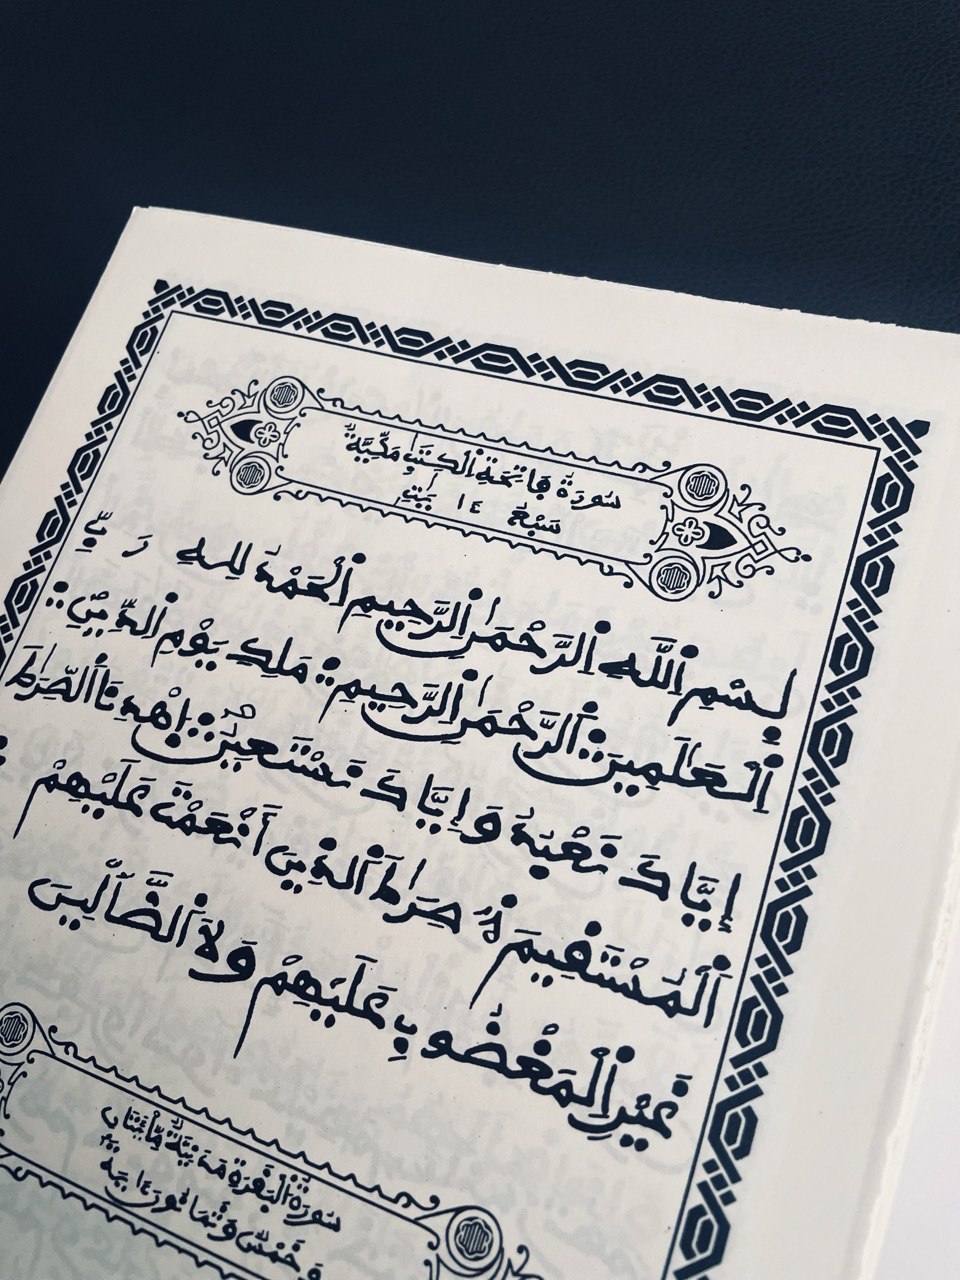 سُورَةُ فَاتِحَةِ الْكِتَٰبِ مَكِّيَّةٌ
سَبْعُ ءَايَٰتٍ
بِسْمِ اِ۬للَّهِ اِ۬لرَّحْمَٰنِ اِ۬لرَّحِيمِ اِ۬لْحَمْدُ لِلهِ رَبِّ
اِ۬لْعَٰلَمِينَ اَ۬لرَّحْمَٰنِ اِ۬لرَّحِيمِ مَلِكِ يَوْمِ اِ۬لدِّينِ
إِيَّاكَ نَعْبُدُ وَإِيَّاكَ نَسْتَعِينُ اُ۪هْدِنَا اَ۬لصِّرَٰطَ
اَ۬لْمُسْتَقِيمَ صِرَٰطَ اَ۬لذِينَ أَنْعَمْتَ عَلَيْهِمْ
غَيْرِ اِ۬لْمَغْضُوبِ عَلَيْهِمْ وَلَا اَ۬لضَّآلِّينَ
سُورَةُ الْبَقَرَةِ مَدَنِيَّةٌ مِائَتَانِ
وَخَمْسٌ وَثَمَانُونَ ءَايَةً